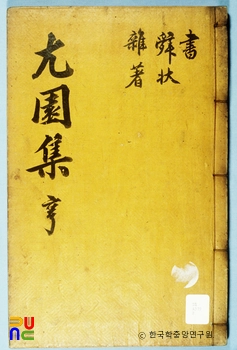 書
辤狀
雜著
尤園集 亨
ⓒ 한국학중앙연구원